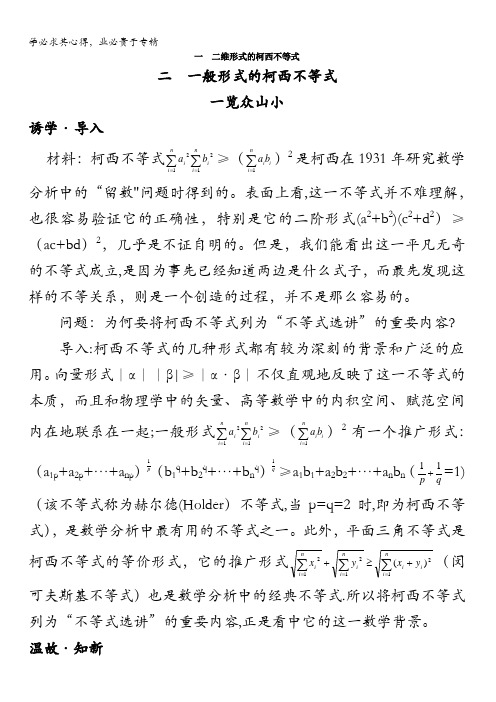 学必求其心得，业必贵于专精
一 二维形式的柯西不等式
二 一般形式的柯西不等式
一览众山小
诱学·导入
材料：柯西不等式$\sum_{i=1}^{n}a_i^2\sum_{i=1}^{n}b_i^2$≥（$\sum_{i=1}^{n}a_ib_i$）²是柯西在1931年研究数学
分析中的“留数"问题时得到的。表面上看,这一不等式并不难理解，
也很容易验证它的正确性，特别是它的二阶形式(a²+b²)(c²+d²）≥
（ac+bd）²，几乎是不证自明的。但是，我们能看出这一平凡无奇
的不等式成立,是因为事先已经知道两边是什么式子，而最先发现这
样的不等关系，则是一个创造的过程，并不是那么容易的。
问题：为何要将柯西不等式列为“不等式选讲”的重要内容?
导入:柯西不等式的几种形式都有较为深刻的背景和广泛的应
用。向量形式｜α｜｜β|≥｜α·β｜不仅直观地反映了这一不等式的
本质，而且和物理学中的矢量、高等数学中的内积空间、赋范空间
内在地联系在一起;一般形式$\sum_{i=1}^{n}a_i^2\sum_{i=1}^{n}b_i^2$≥（$\sum_{i=1}^{n}a_ib_i$）²有一个推广形式：
（a₁ₚ+a₂ₚ+…+aₙₚ）$^{\frac{1}{p}}$（b₁^q+b₂^q+…+bₙ^q）$^{\frac{1}{q}}$≥a₁b₁+a₂b₂+…+aₙbₙ（$\frac{1}{p}+\frac{1}{q}$=1)
（该不等式称为赫尔德(Holder）不等式,当p=q=2时,即为柯西不等
式），是数学分析中最有用的不等式之一。此外，平面三角不等式是
柯西不等式的等价形式，它的推广形式$\sqrt{\sum_{i=1}^{n}x_i^2}+\sqrt{\sum_{i=1}^{n}y_i^2}\geq\sqrt{\sum_{i=1}^{n}(x_i+y_i)^2}$（闵
可夫斯基不等式）也是数学分析中的经典不等式.所以将柯西不等式
列为“不等式选讲”的重要内容,正是看中它的这一数学背景。
温故·知新